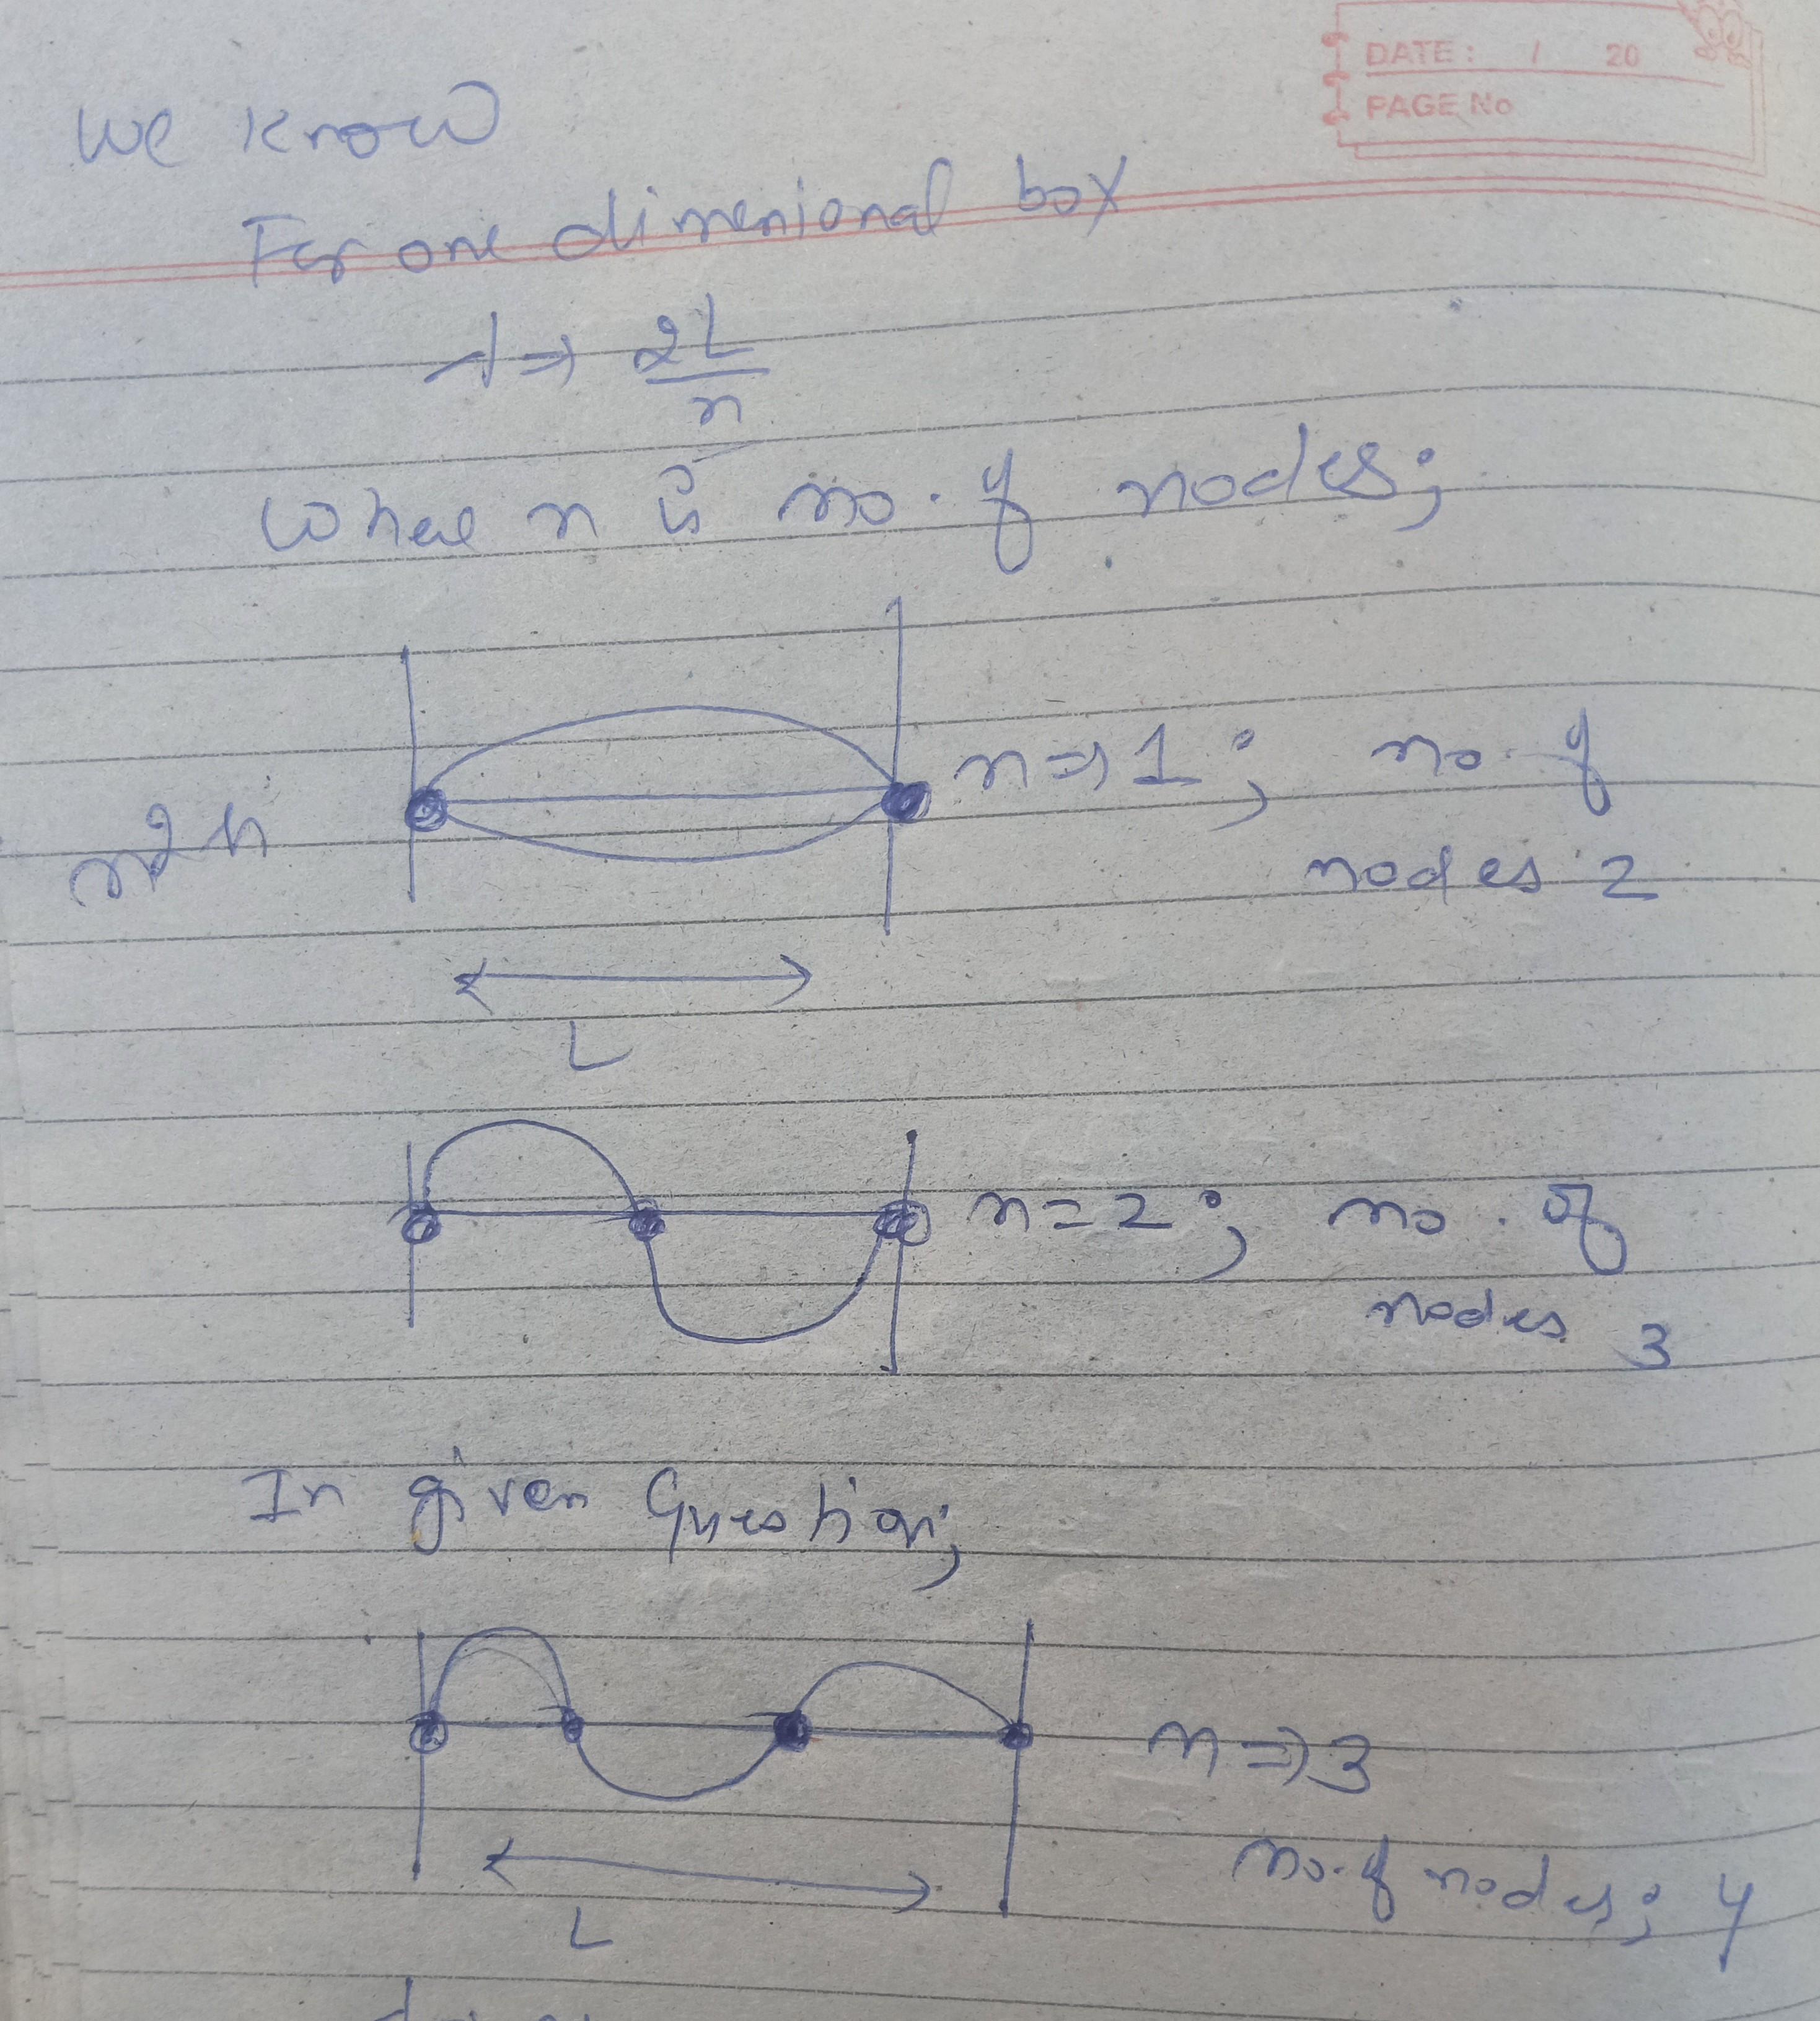 DATE: / 20
PAGE No
We know
For one dimenional box
λ ⇒ 2L
n
where n is no. of nodes;
n ⇒ 1; no. of
nodes 2
L
n = 2; no. of
nodes 3
In given Question;
n ⇒ 3
no. of nodes; 4
L